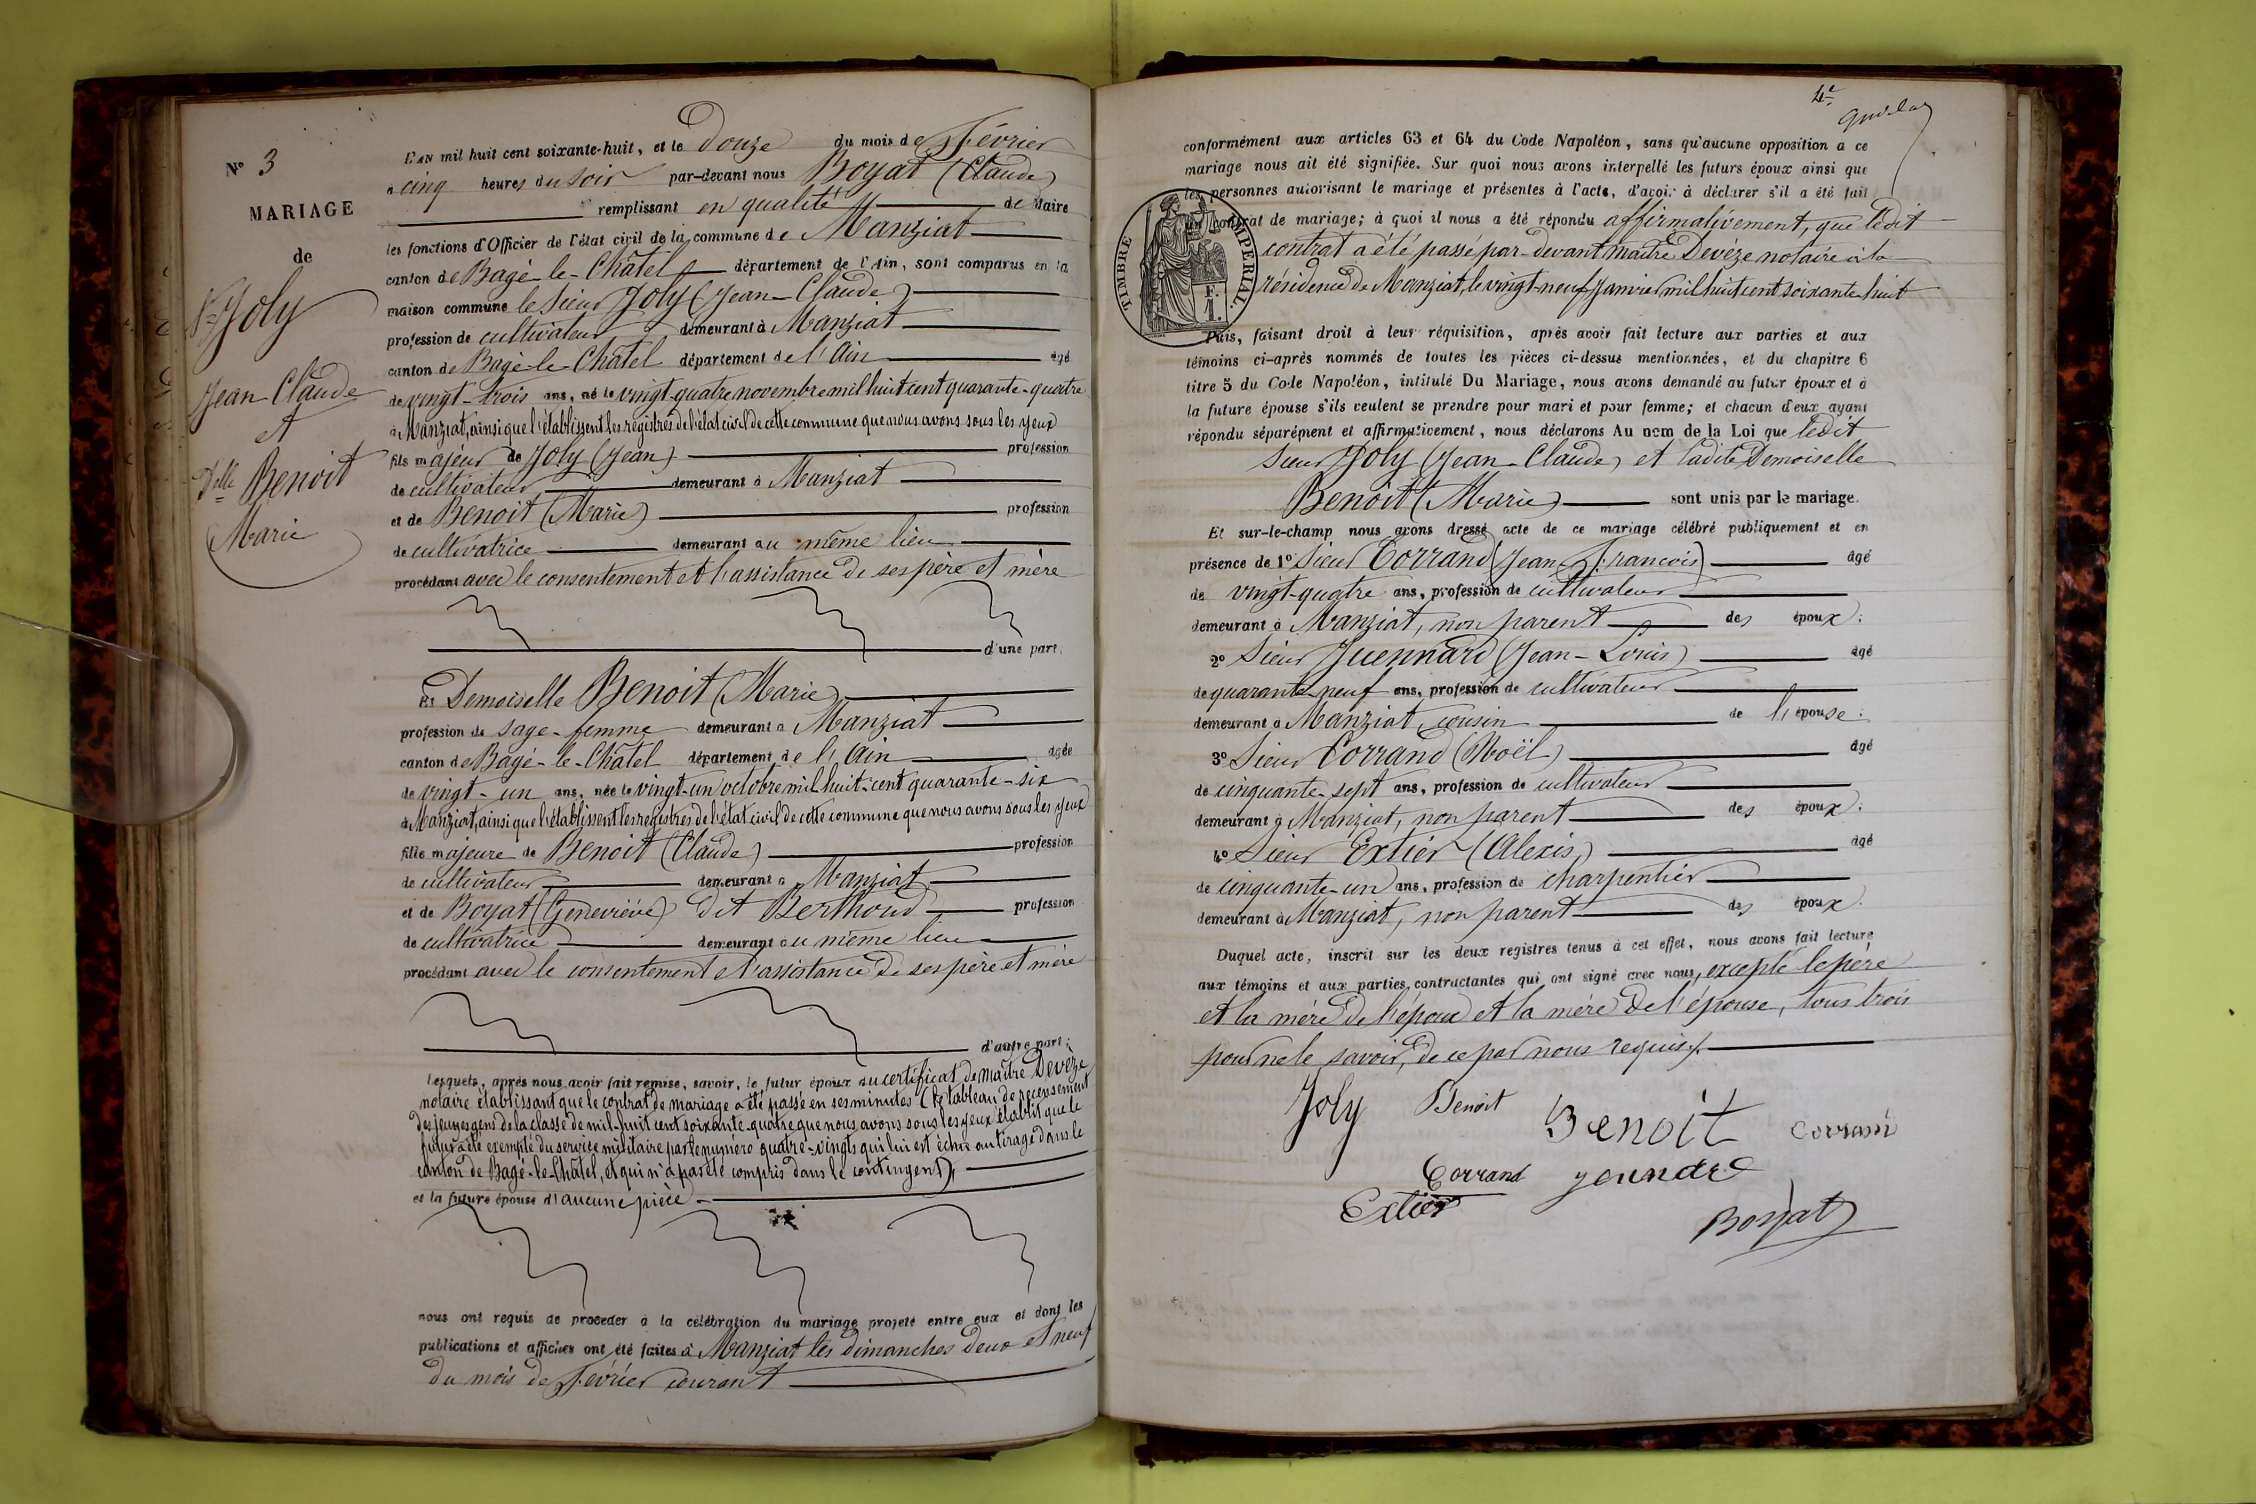 N° 3
MARIAGE
de
Sr Joly
Jean-Claude
et
Delle Benoit
Marie
L'AN mil huit cent soixante-huit, et le douze du mois de Février
à cinq heures du soir par-devant nous Boyat (Claude)
remplissant en qualité de Maire
les fonctions d'Officier de l'état civil de la commune de Manziat
canton de Bagé-le-Châtel département de l'Ain, sont comparus en la
maison commune le Sieur Joly (Jean-Claude)
profession de cultivateur demeurant à Manziat
canton de Bagé-le-Châtel département de l'Ain âgé
de vingt-trois ans, né le vingt-quatre novembre mil huit cent quarante-quatre
à Manziat, ainsi que l'établissent les registres de l'état civil de cette commune que nous avons sous les yeux
fils majeur de Joly (Jean) profession
de cultivateur demeurant à Manziat
et de Benoit (Marie) profession
de cultivatrice demeurant au même lieu
procédant avec le consentement et l'assistance de ses père et mère
d'une part.
Et Demoiselle Benoit (Marie)
profession de sage-femme demeurant à Manziat
canton de Bagé-le-Châtel département de l'Ain âgée
de vingt-un ans, née le vingt-un octobre mil huit-cent quarante-six
à Manziat, ainsi que l'établissent les registres de l'état civil de cette commune que nous avons sous les yeux
fille majeure de Benoit (Claude) profession
de cultivateur demeurant à Manziat
et de Boyat (Geneviève) dit Berthoud profession
de cultivatrice demeurant au même lieu
procédant avec le consentement et l'assistance de ses père et mère
d'autre part;
Lesquels, après nous avoir fait remise, savoir, le futur époux du certificat de maître Devèze
notaire établissant que le contrat de mariage a été passé en ses minutes (le tableau de recensement
des jeunes gens de la classe de mil-huit cent soixante-quatre que nous avons sous les yeux établit que le
futur a été exempté du service militaire par le numéro quatre-vingts qui lui est échu au tirage dans le
canton de Bagé-le-Châtel, et qui n'a pas été compris dans le contingent),
et la future épouse d'aucune pièce
nous ont requis de procéder à la célébration du mariage projeté entre eux et dont les
publications et affiches ont été faites à Manziat les dimanches deux et neuf
du mois de Février courant
4e
conformément aux articles 63 et 64 du Code Napoléon, sans qu'aucune opposition à ce
mariage nous ait été signifiée. Sur quoi nous avons interpellé les futurs époux ainsi que
les personnes autorisant le mariage et présentes à l'acte, d'avoir à déclarer s'il a été fait
un contrat de mariage; à quoi il nous a été répondu affirmativement, que ledit
contrat a été passé par-devant maître Devèze notaire à la
résidence de Manziat, le vingt-neuf Janvier mil huit cent soixante-huit
TIMBRE IMPERIAL
1 F.
Puis, faisant droit à leur réquisition, après avoir fait lecture aux parties et aux
témoins ci-après nommés de toutes les pièces ci-dessus mentionnées, et du chapitre 6
titre 5 du Code Napoléon, intitulé Du Mariage, nous avons demandé au futur époux et à
la future épouse s'ils veulent se prendre pour mari et pour femme; et chacun d'eux ayant
répondu séparément et affirmativement, nous déclarons Au nom de la Loi que ledit
Sieur Joly (Jean-Claude) et ladite Demoiselle
Benoit (Marie) sont unis par le mariage.
Et sur-le-champ nous avons dressé acte de ce mariage célébré publiquement et en
présence de 1° Sieur Corrand (Jean-François) âgé
de vingt-quatre ans, profession de cultivateur
demeurant à Manziat, non parent des époux;
2° Sieur Juennard (Jean-Louis) âgé
de quarante-neuf ans, profession de cultivateur
demeurant à Manziat, cousin de l'épouse;
3° Sieur Corrand (Noël) âgé
de cinquante-sept ans, profession de cultivateur
demeurant à Manziat, non parent des époux;
4° Sieur Extier (Alexis) âgé
de cinquante-un ans, profession de charpentier
demeurant à Manziat, non parent des époux.
Duquel acte, inscrit sur les deux registres tenus à cet effet, nous avons fait lecture
aux témoins et aux parties contractantes qui ont signé avec nous, excepté le père
et la mère de l'époux et la mère de l'épouse, tous trois
pour ne le savoir, de ce par nous requis.
Joly Benoit Benoit Corrand
Corrand
Extier Boyat